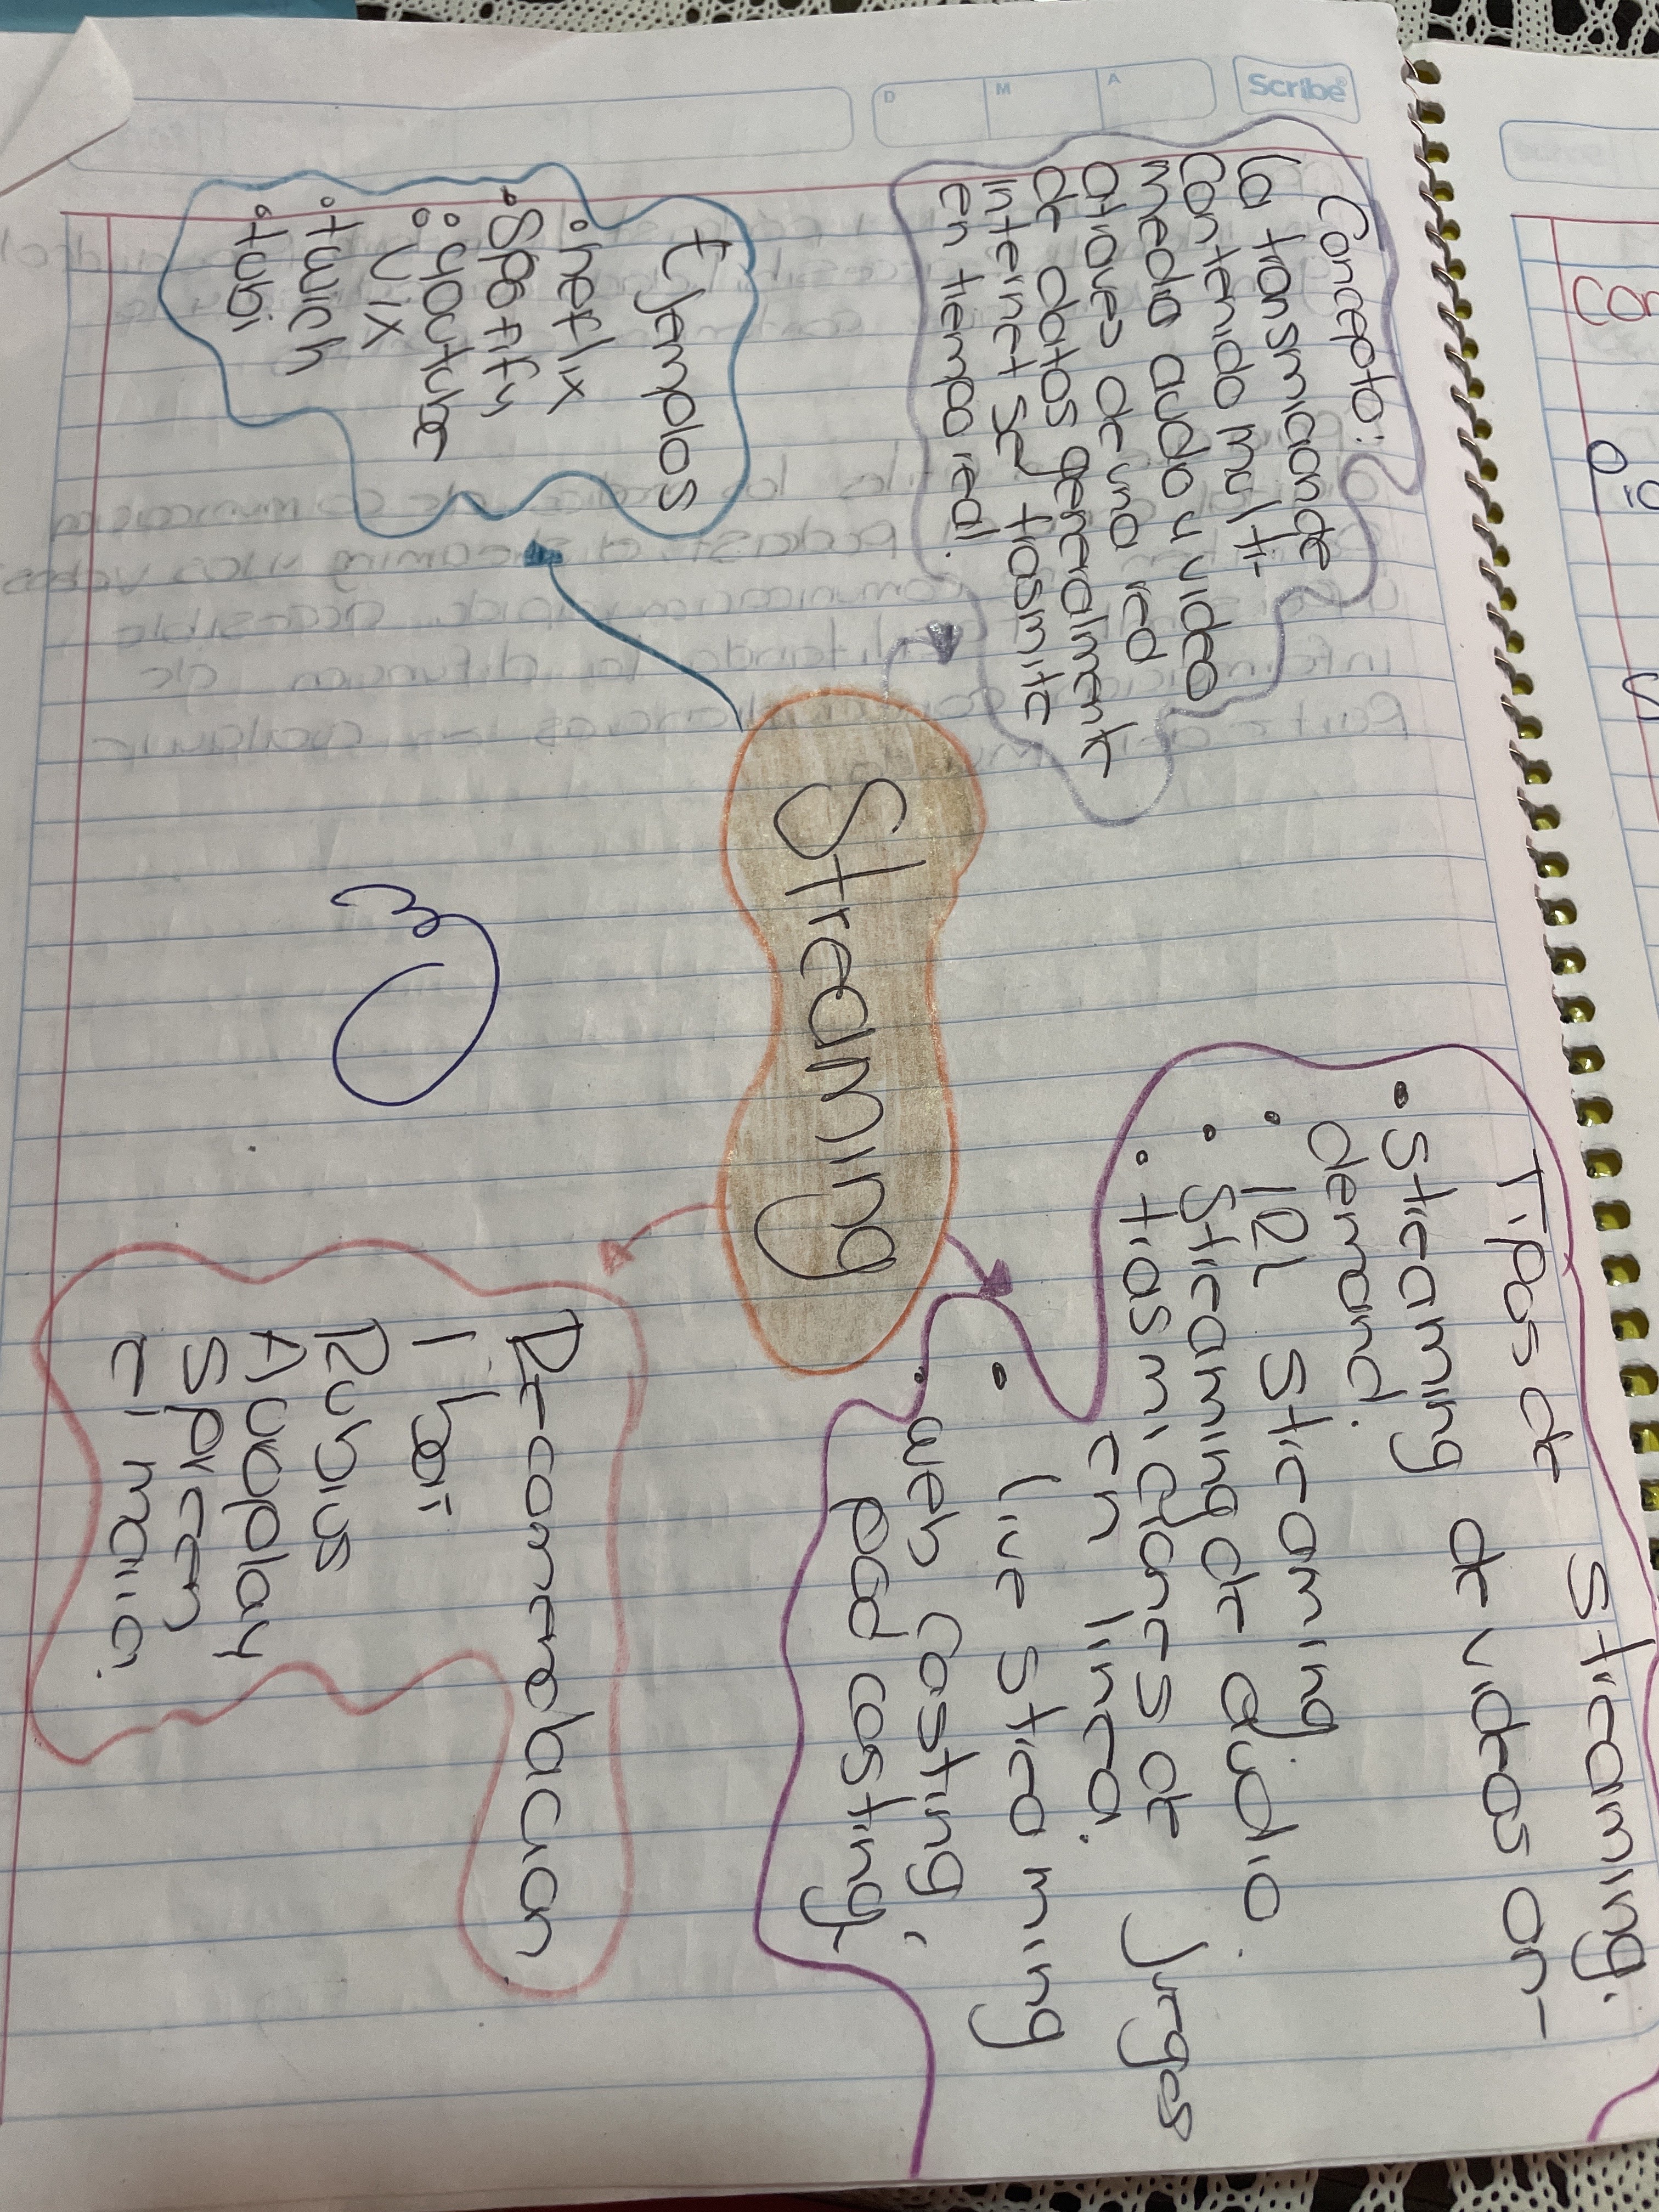 Scribe
D
M
A
Concepto:
La transmicionde
Contenido multi-
media audio y video
atraves de una red
de datos generalmente
internet se trasmite
en tiempo real.
Ejemplos
• netflix
• Spotify
• youtube
• Vix
• twich
• tubi
Streaming
Tipos de Streaming.
• Streaming de videos on-
demand.
• IRL Streaming.
• Streaming de audio.
• trasmiciones de juegos
en linea.
• live streaming
• web casting,
pod casting.
Recomendacion
Ibai
Rubius
Auronplay
Spreen
El mariii.
Con